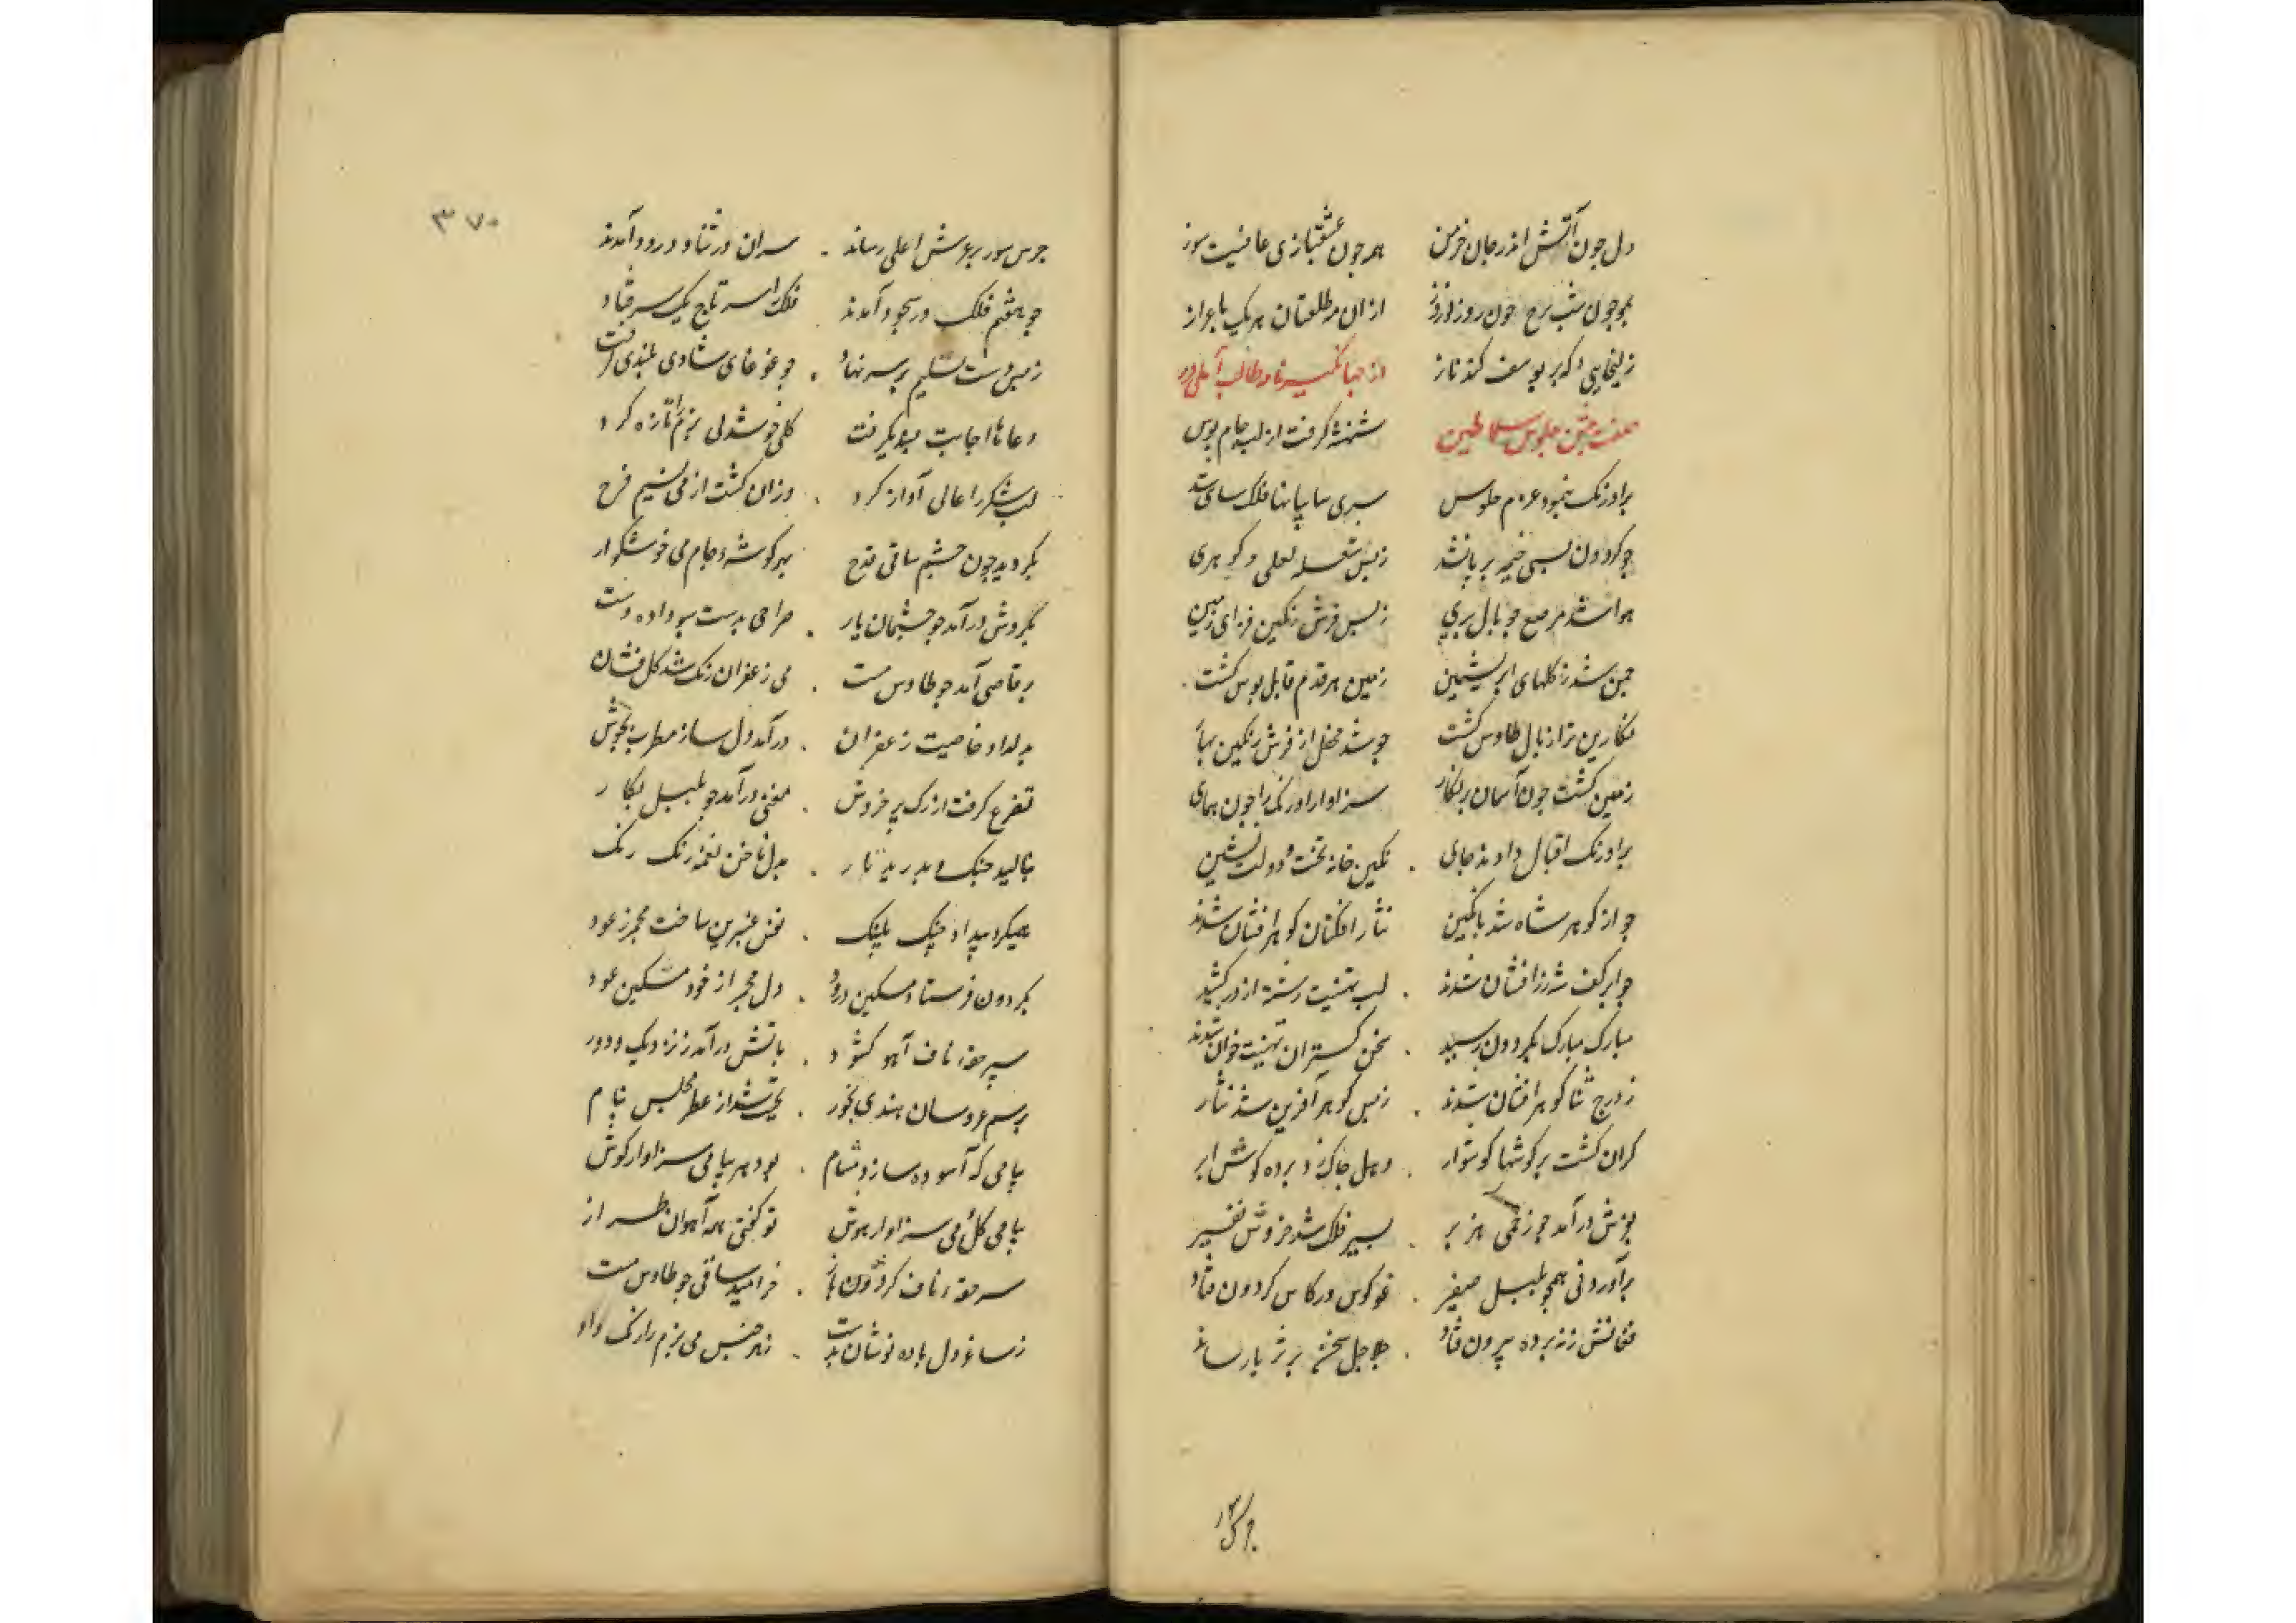 دل چون آتش اندر جان خرمن همه چون عشقبازی عافیت سوز
همچون شب برخ چون روز نوروز از ان مه طلعتان هر یک باعزاز
زلیخایی که بر یوسف کند ناز از جهانگیرنامه طالب آملی در
صفت جشن جلوس سلاطین شهنشه گرفت از لب جام بوس
براورنک بنمود عزم جلوس سپری سایبانها فلک سای شد
چو گردون بسی خیمه بر پا شد زبس شعله لعلی و گوهری
هوا شد مرصع چو بال پری زبس فرش رنگین فزای زمین
چمن شد ز گلهای ابریشمین زمین هر قدم قابل بوس گشت
نگارین تر از بال طاوس گشت چو شد محفل از فرش رنگین بهار
زمین گشت چون آسمان پرنگار سزاوار اورنک را چون همای
براورنک اقبال دادند جای نگین خانه تخت دولت نشین
چو از گوهر شاه شد بانگین نثار افکنان گوهر افشان شدند
چو ابر کف شه زرافشان شدند لب تهنیت رشته از در کشید
مبارک مبارک بگردون رسید سخن گستران تهنیت خوان شدند
ز درج ثنا گوهر افشان شدند زبس گوهر آفرین شد نثار
گران گشت بر گوشها گوشوار دهل چاک زد پرده گوش ابر
بجوش درآمد چو زخمی هزبر بسیر فلک شد خروش نفیر
برآورد نی همچو بلبل صفیر غو کوس در کاس گردون فتاد
فغانش ز نه پرده بیرون فتاد جلاجل سخن بر ثریا رساند
جرس
جرس سور بر عرش اعلی رساند سران در ثنا و درود آمدند
چو هفتم فلک در سجود آمدند فلک را سر تاج یک سر فتاد
زمین دست تسلیم بر سر نهاد چو غوغای شادی بلندی گرفت
دعاها اجابت پذیری گرفت گل خوشدلی بزم را تازه کرد
لب شکر را عالی آوازه کرد وزان گشت از می نسیم فرح
بگردید چون چشم ساقی قدح بهر گوشه جام می خوشگوار
بگردش درآمد چو چشمان یار صراحی بدست سبو داده دست
برقاصی آمد چو طاوس مست می زعفران رنک شد گل فشان
بدلداد خاصیت زعفران درآمد دل ساز مطرب بجوش
تفرع گرفت از رک پر خروش مغنی درآمد چو بلبل بکار
بنالید چنک و بدرید تار بدل ناخن نغمه رنک رنک
همیکرد بیداد چنک پلنک نفس عنبرین ساخت مجمر ز عود
بگردون فرستاد مسکین درود دل مجمر از خود مشکین عود
سپر حقه ناف آهو کشود باتش درآمد ز نزدیک و دور
برسم عروسان هندی بخور یکی شد از عطر مجلس پیام
پیامی که آسوده سازد مشام بود هر پیامی سزاوار گوش
پیامی کل می سزاوار هوش تو گفتی همه آهوان طراز
سر حقه ناف کردند باز خرامید ساقی چو طاوس مست
ز ساغر دل باده نوشان بدست ز هر جنس می بزم را رنک داد
۳۷۰